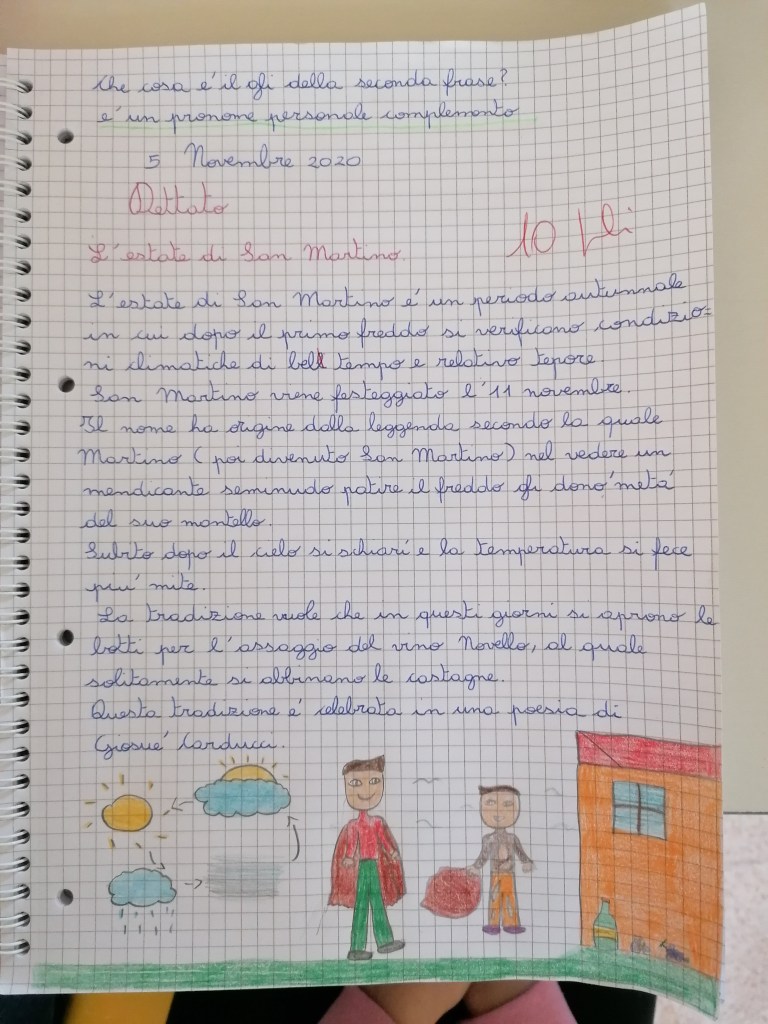 Che cosa é il gli della seconda frase?
e' un pronome personale complemento
5 Novembre 2020
Dettato
10
L'estate di San Martino.
L'estate di San Martino é un periodo autunnale
in cui dopo il primo freddo si verificano condizio=
ni climatiche di bel tempo e relativo tepore.
San Martino viene festeggiato l'11 novembre.
Il nome ha origine dalla leggenda secondo la quale
Martino (poi divenuto San Martino) nel vedere un
mendicante seminudo patire il freddo gli donó metá
del suo mantello.
Subito dopo il cielo si schiarí e la temperatura si fece
piú mite.
La tradizione vuole che in questi giorni si aprono le
botti per l'assaggio del vino Novello, al quale
solitamente si abbinano le castagne.
Questa tradizione é celebrata in una poesia di
Giosué Carducci.